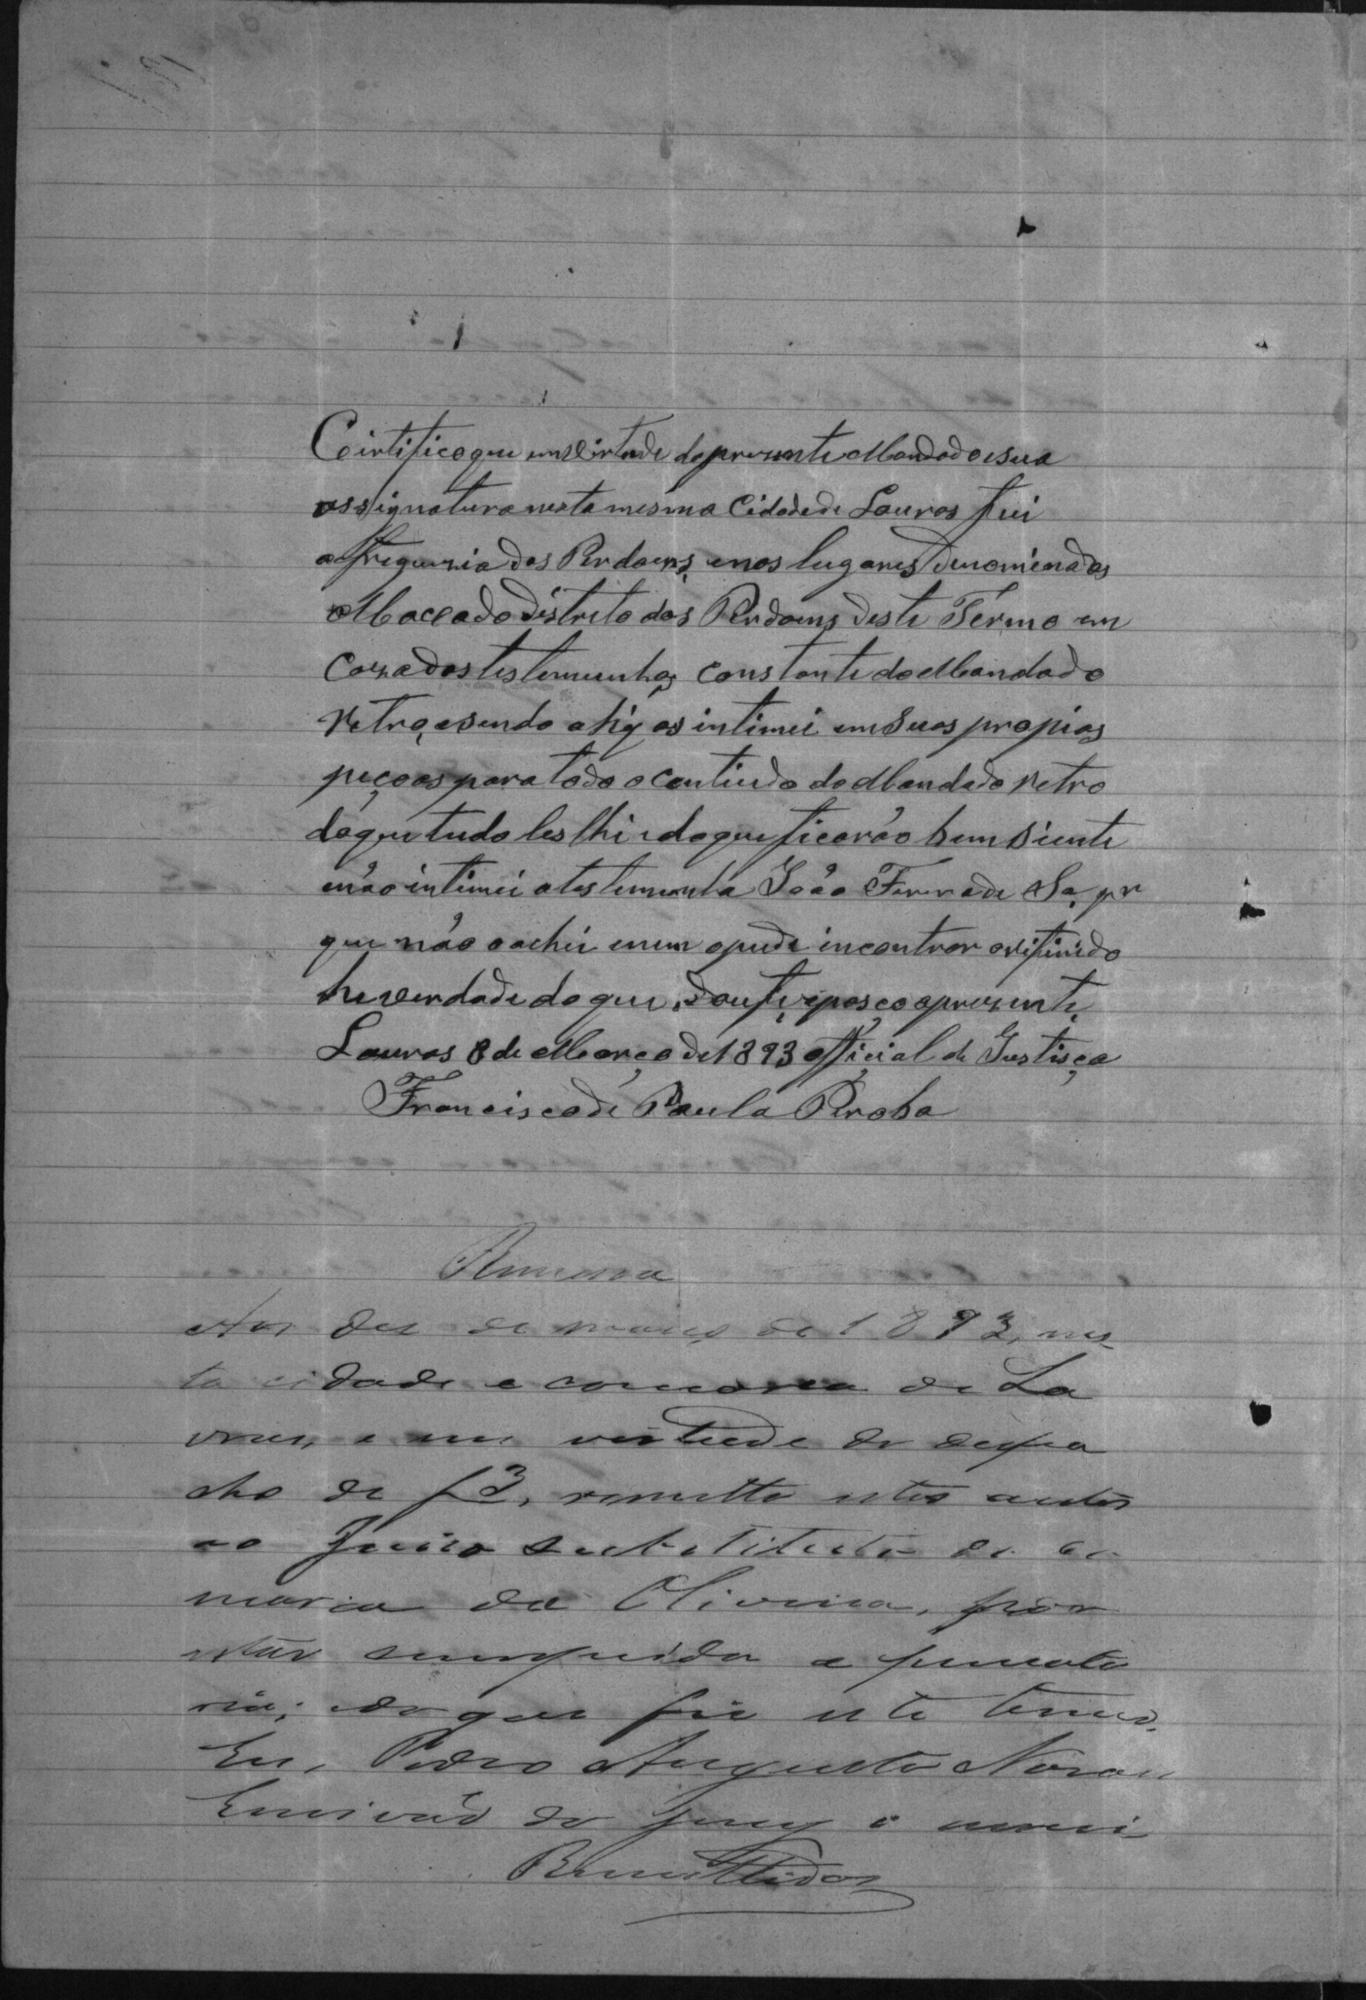 Ceirtifico que em Virtude do prezente Mandado e sua
assignatura nesta mesma Cidade de Lavras fui
a freguezia dos Perdoens, e nos lugares denominados
Macado distrito dos Perdoens deste Termo em
Caza das testemunhas constante do Mandado
retro, e sendo ahi, as intimei em Suas propias
peçoas para todo o contiudo do Mandado retro
do que tudo les lhi e do que ficarão bem Siente
e não intimei a testemunha João Ferra de Sa, pr
que não o achei e nem o pude incontrar o rifirido
he verdade do que dou fe, e pasço a prezente,
Lavras 8 de Março de 1893 Official de Justisça
Francisco de Paula Peroba
Remessa
Aos dez de março de 1893, nes
ta cidade e comarca de La
vras, e em virtude do despa
cho de f 3, remetto estes autos
ao Juizo substituto da co
marca da Oliveira, por
estar cumprida a precato
ria; do que fiz este termo.
Eu, Pedro Augusto
Escrivão do jury o escrevi
Remettidos